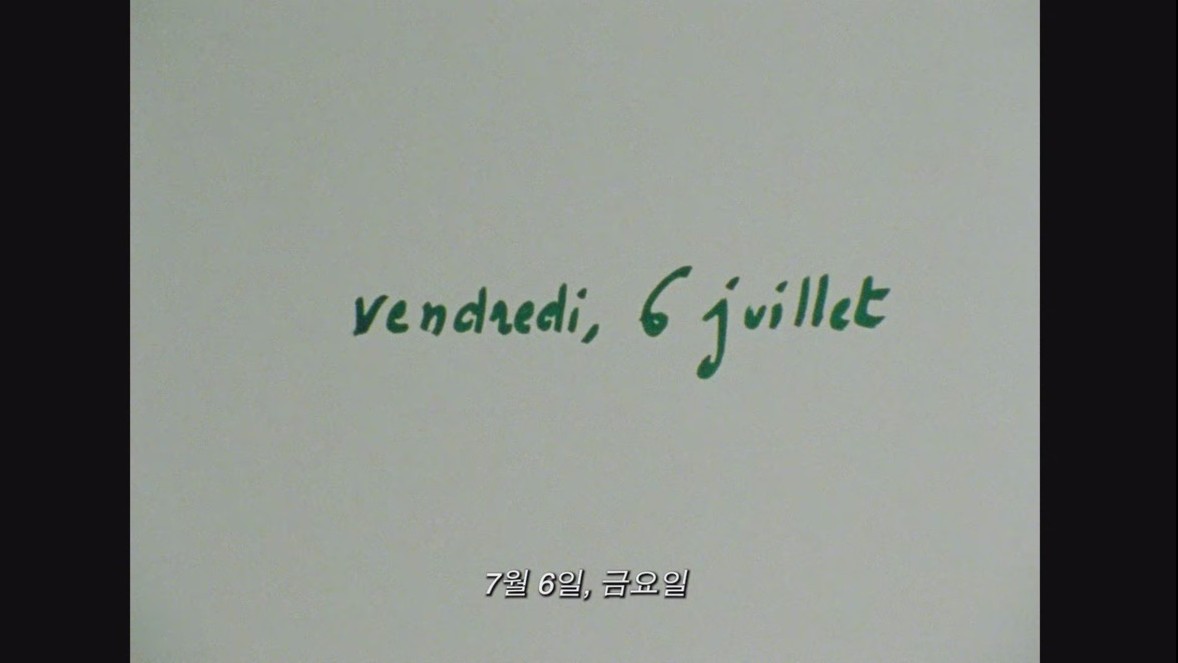 vendredi, 6 juillet
7월 6일, 금요일